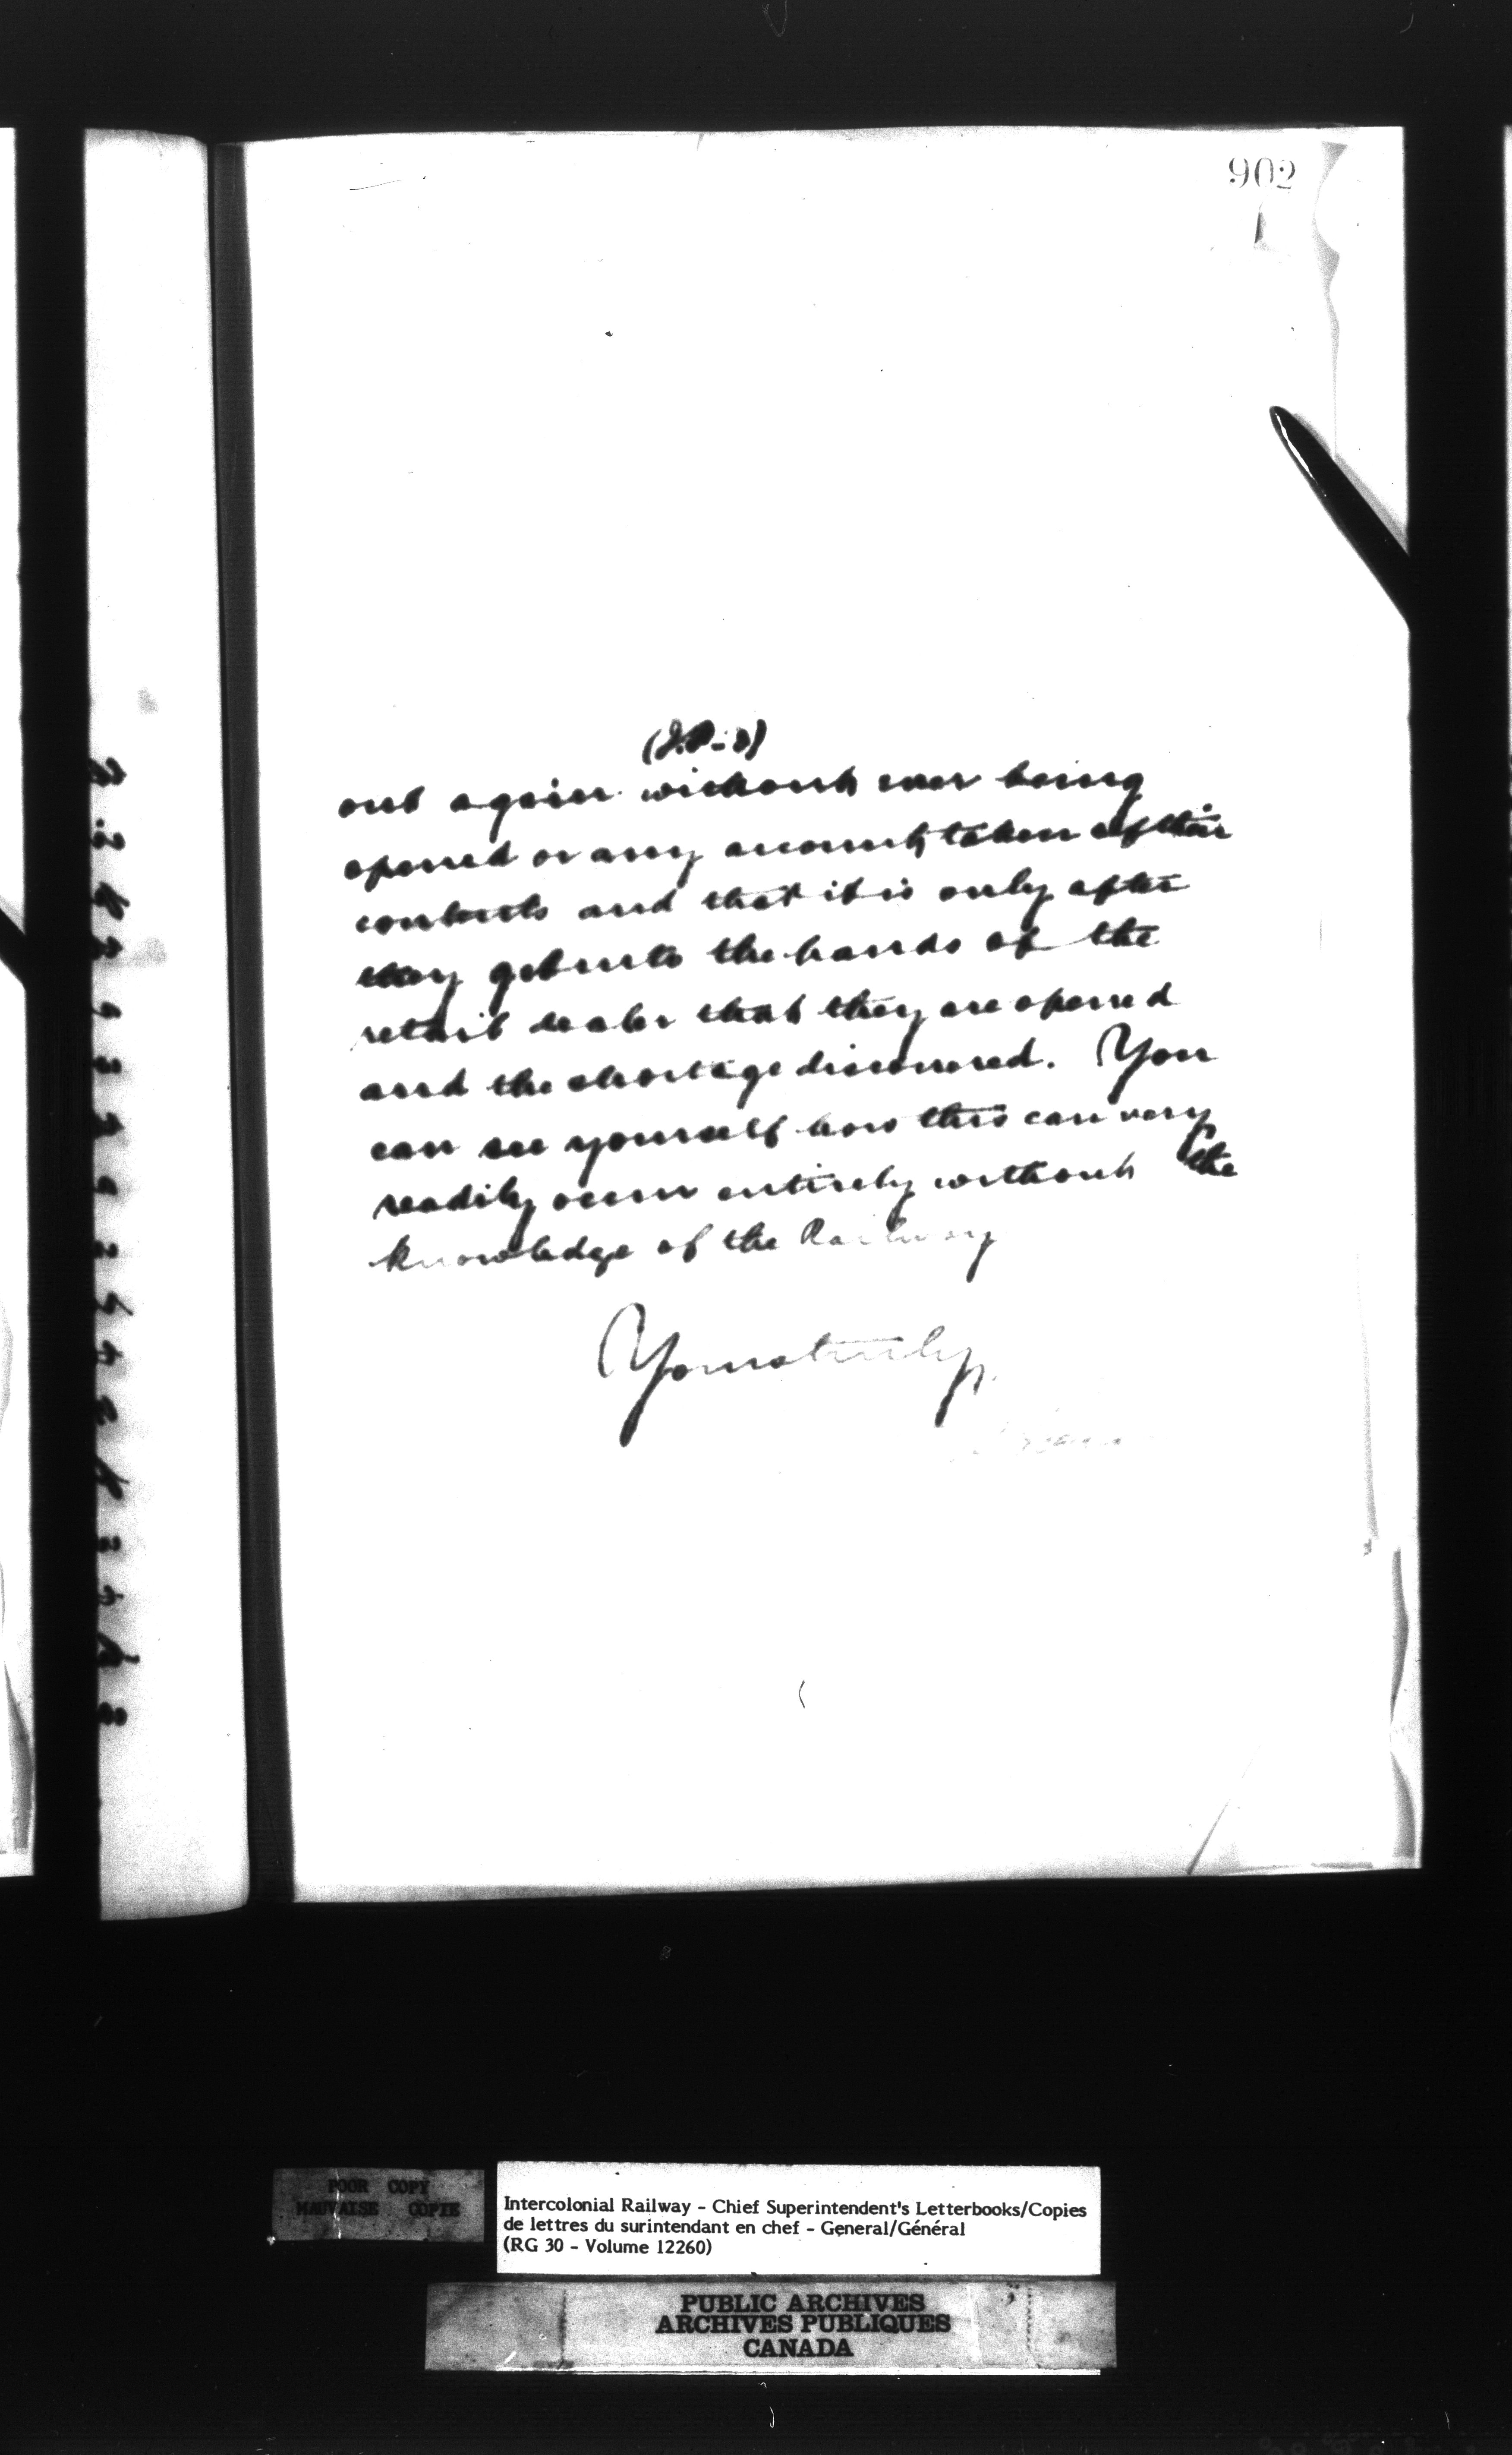 902
out again without ever being
opened or any account taken of their
contents and that it is only after
they get into the hands of the
retail dealer that they are opened
and the shortage discovered. You
can see yourself how this can very
readily occur entirely without the
knowledge of the Railway
Yours truly
POOR COPY
MAUVAISE COPIE
Intercolonial Railway - Chief Superintendent's Letterbooks/Copies
de lettres du surintendant en chef - General/Général
(RG 30 - Volume 12260)
PUBLIC ARCHIVES
ARCHIVES PUBLIQUES
CANADA